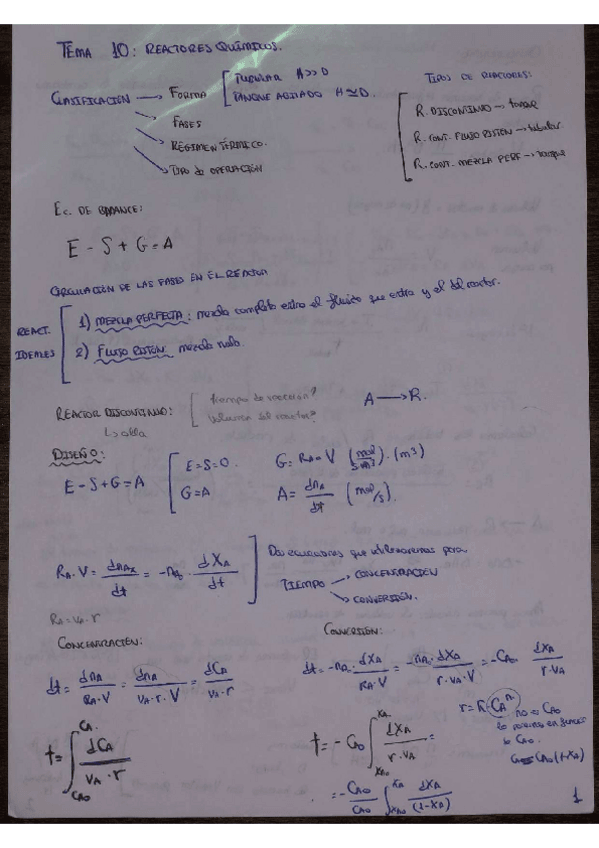 TEMA 10: REACTORES QUÍMICOS.
CLASIFICACIÓN → FORMA [ TUBULAR H>>D
TANQUE AGITADO H≃D.
→ FASES
→ RÉGIMEN TÉRMICO.
→ TIPO de OPERACIÓN
TIPOS DE REACTORES:
R. DISCONTINUO → tanque
R. CONT. FLUJO PISTON → tubular.
R. CONT. MEZCLA PERF → tanque
Ec. DE BALANCE:
E - S + G = A
CIRCULACIÓN DE LAS FASES EN EL REACTOR
REACT. IDEALES
1) MEZCLA PERFECTA: mezcla completa entre el fluido que entra y el del reactor.
2) FLUJO PISTON: mezcla nula.
REACTOR DISCONTINUO: [ tiempo de reacción?
volumen del reactor?
A → R.
↳ olla
DISEÑO:
E - S + G = A [ E=S=0.
G=A
G = RA · V (mol/s·m³) · (m³)
A = dnA/dt (mol/s).
RA · V = dnA/dt = -nA0 · dXA/dt
Dos ecuaciones que utilizaremos para
TIEMPO → CONCENTRACIÓN
→ CONVERSIÓN.
RA = νA · r
CONCENTRACIÓN:
dt = dnA/RA·V = dnA/νA·r·V = dCA/νA·r
t = ∫ CA0 CA dCA/νA·r
CONVERSIÓN:
dt = -nA0 · dXA/RA·V = -nA0·dXA/r·νA·V = -CA0 dXA/r·νA
t = -CA0 ∫ XA0 XA dXA/r·νA =
r = k·CA^n no es CA0
lo ponemos en función
de CA0.
CA = CA0 (1-XA)
= -CA0/CA0 ∫ XA0 XA dXA/(1-XA)
1